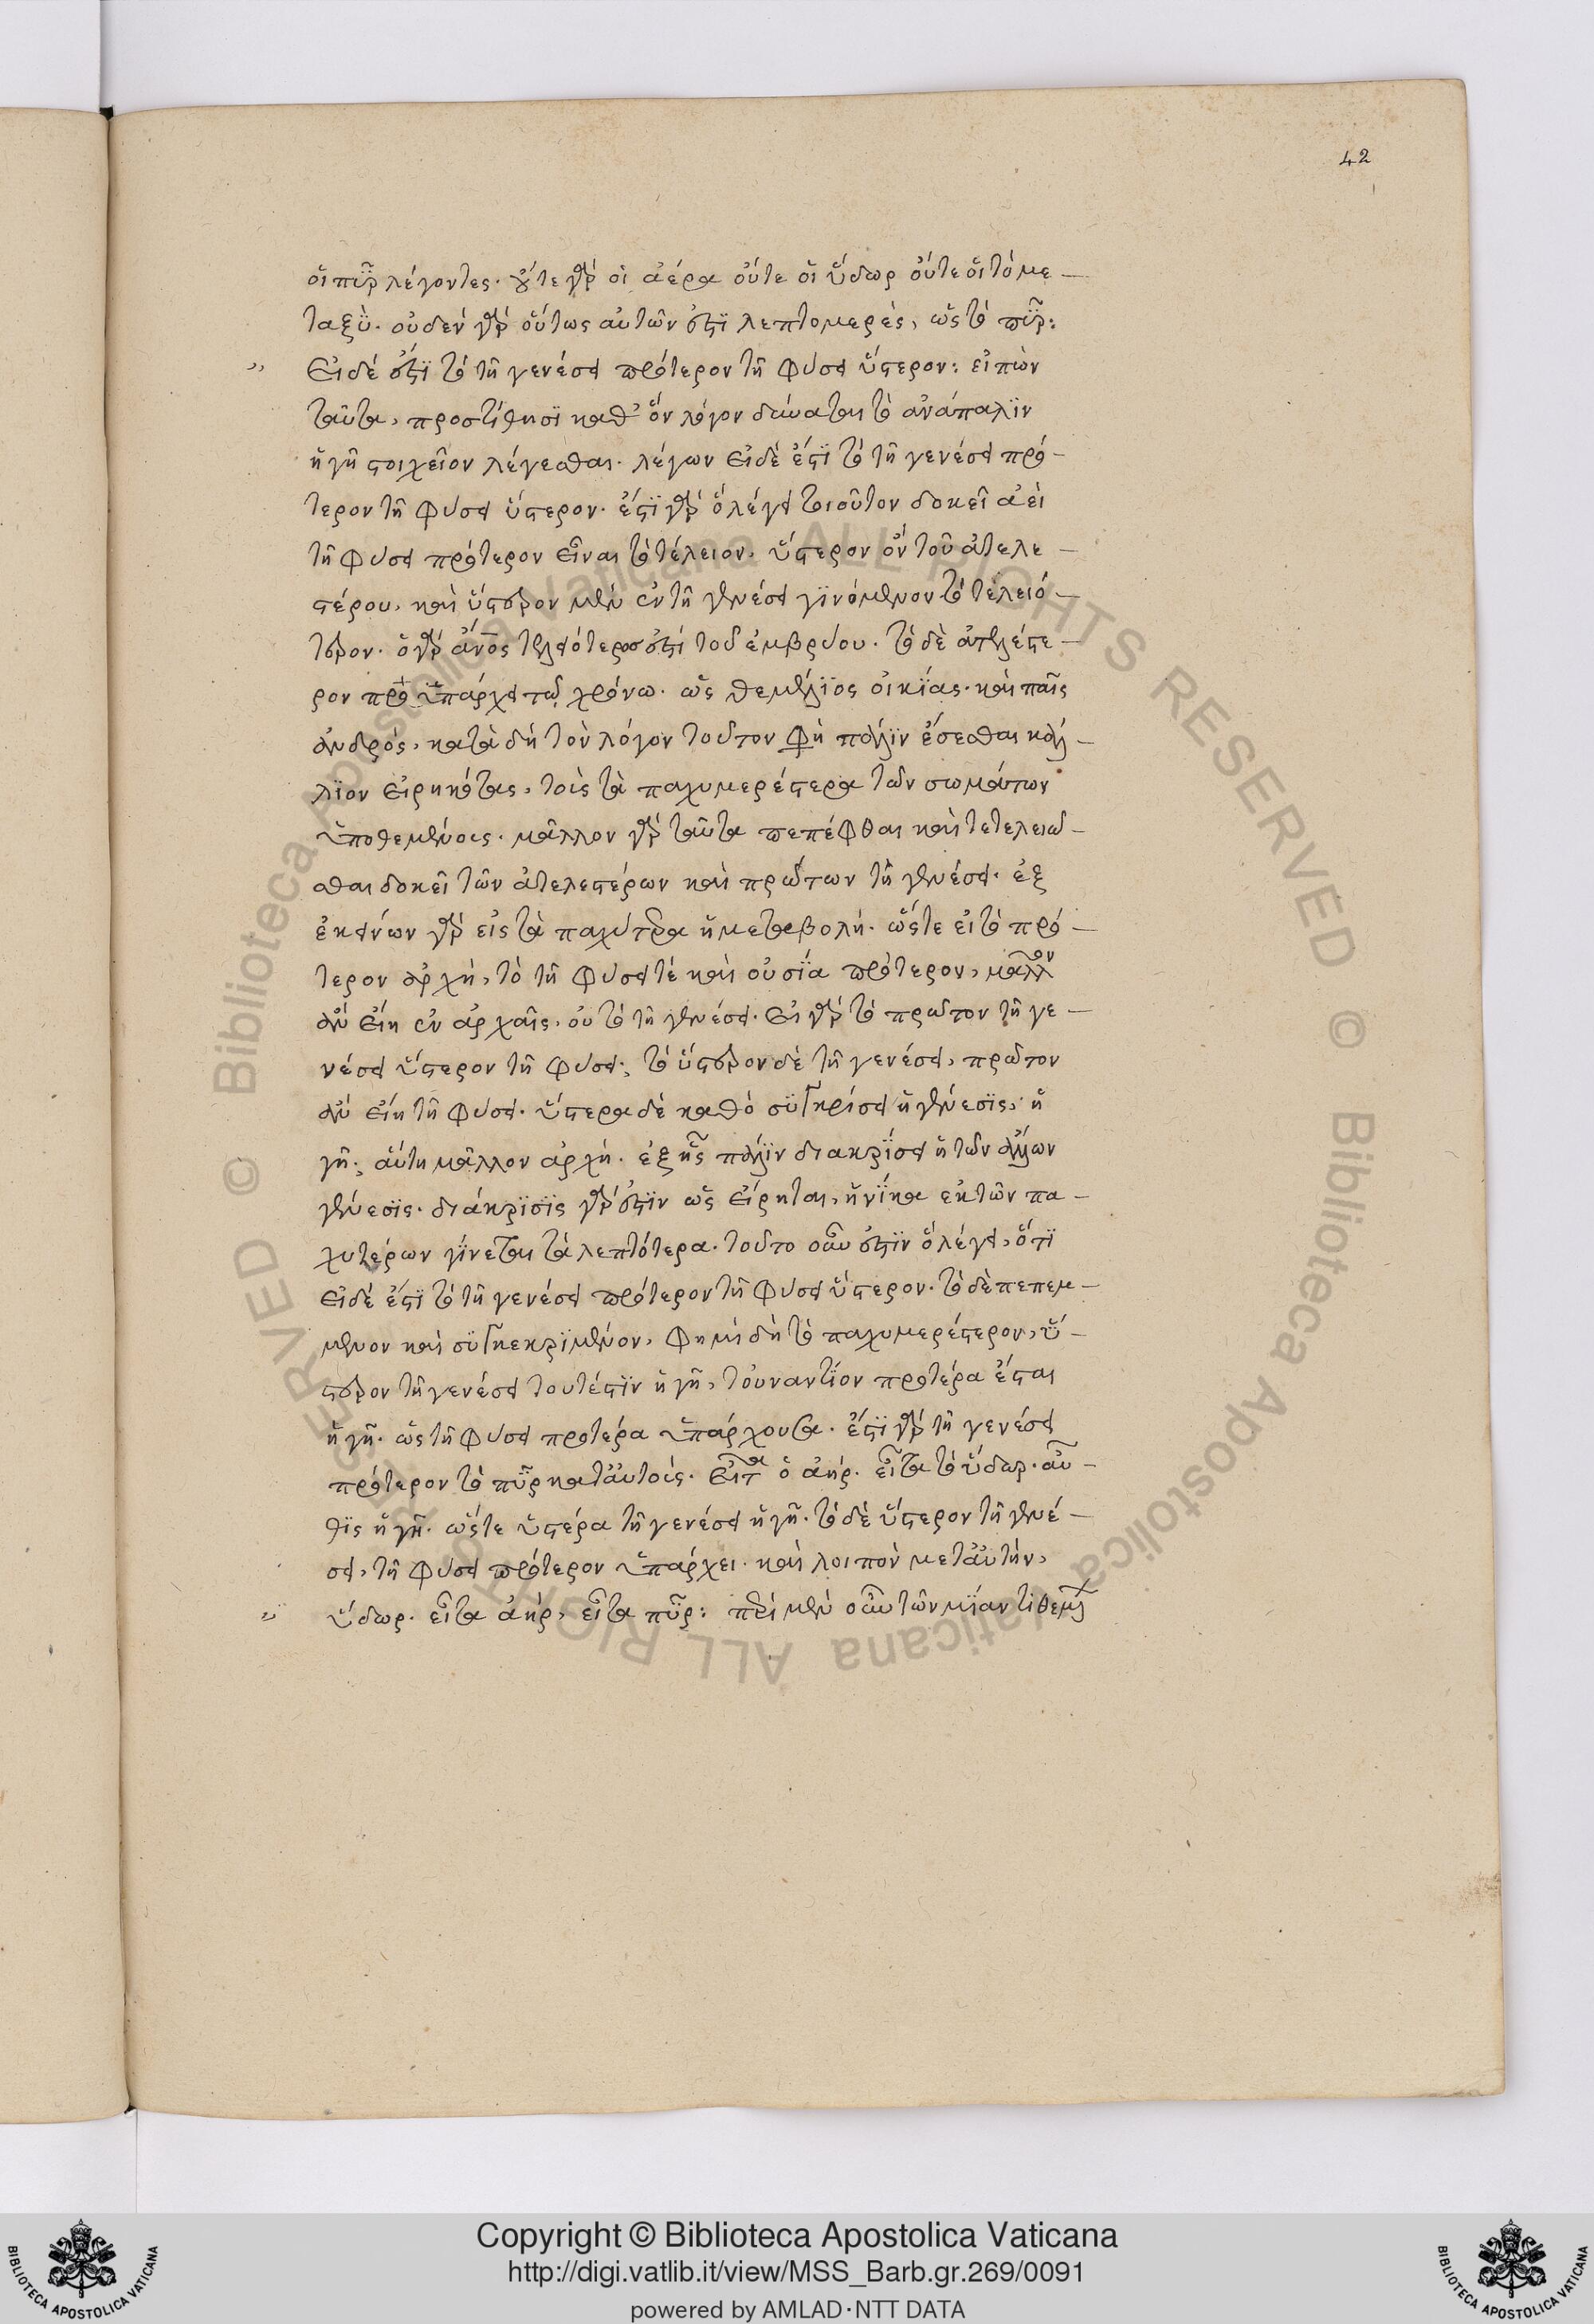 42
οἵ πῦρ λέγοντες· οὔτε γὰρ οἱ ἀέρα οὔτε οἵ ὕδωρ οὔτε οἵ τὸ με–
ταξὺ. οὐδὲν γὰρ οὕτως αὐτῶν ἐστὶ λεπτομερὲς, ὡς τὸ πῦρ:
Εἰ δέ ἐστὶ τὸ τῆ γενέσει πρότερον τῆ φύσει ὕστερον: εἰπὼν
ταῦτα, προστίθησι καθ' ὅν λόγον δύναται τὸ ἀνάπαλϊν
ἡ γῆ στοιχεῖον λέγεσθαι. λέγων εἰ δὲ ἔστϊ τὸ τῆ γενέσει πρό–
τερον τῆ φύσει ὕστερον. ἔστϊ γὰρ ὅ λέγει τοιοῦτον δοκεῖ ἀεὶ
τῆ φύσει πρότερον εἶναι τὸ τέλειον. ὕστερον ὄν τοῦ ἀτελε–
στέρου. καὶ ὕστερον μὲν ἐν τῆ γενέσει γϊνόμενον τὸ τελειό–
τερον. ὁ γὰρ ἄνος τελειότερος ἐστὶ τοῦ ἐμβρύου. τὸ δὲ ἀτελέστε–
ρον πρὸ ὑπάρχει τῶ χρόνω. ὡς θεμέλϊος οἰκίας. καὶ παῖς
ἀνδρός. κατὰ δὴ τὸν λόγον τοῦτον φη πάλϊν ἔσεσθαι κάλ–
λϊον εἰρηκότας, τοὶς τὰ παχυμερέστερα τῶν σωμάτων
ὑποθεμένοις. μᾶλλον γὰρ ταῦτα πεπέφθαι καὶ τετελειῶ–
σθαι δοκεῖ τῶν ἀτελεστέρων καὶ πρώτων τῆ γενέσει. ἐξ
ἐκείνων γὰρ εἰς τὰ παχύτερα ἡ μεταβολή. ὥστε εἰ τὸ πρό–
τερον ἀρχὴ, τὸ τῆ φύσει τὲ καὶ οὐσία πρότερον, μᾶλλον
ἀν εἴη ἐν ἀρχαῖς. οὐ τὸ τῆ γενέσει. Εἰ γὰρ τὸ πρῶτον τῆ γε–
νέσει ὕστερον τῆ φύσει, τὸ ὕστερον δὲ τῆ γενέσει, πρῶτον
ἀν εἴη τῆ φύσει. ὕστερα δὲ καθὸ συγκρίσει ἡ γένεσϊς, ἡ
γῆ, αὕτη μᾶλλον ἀρχή. ἐξ ἧς πάλϊν διακρίσει ἡ τῶν ἄλλων
γένεσϊς. διάκρϊσϊς γὰρ ἐστϊν ὡς εἴρηται, ἡνίκα ἐκ τῶν πα–
χυτέρων γίνεται τὰ λεπτότερα. τοῦτο οὖν ἐστϊν ὅ λέγει, ὅτϊ
εἰ δέ ἐστϊ τὸ τῆ γενέσει πρότερον τῆ φύσει ὕστερον. τὸ δὲ πεπεμ–
μένον καὶ συγκεκρϊμένον, φημὶ δὴ τὸ παχυμερέστερον, ὕ–
στερον τῆ γενέσει τουτέστϊν ἡ γῆ, τοὐναντίον προτέρα ἔσται
ἡ γῆ. ὡς τῆ φύσει προτέρα ὑπάρχουσα. ἔστϊ γὰρ τῆ γενέσει
πρότερον τὸ πῦρ κατ' αὐτοίς. εἶτα ὁ ἀήρ. εἶτα τὸ ὕδωρ. αὖ–
θϊς ἡ γῆ. ὥστε ὑστέρα τῆ γενέσει ἡ γῆ. τὸ δὲ ὕστερον τῆ γενέ–
σει, τῆ φύσει πρότερον ὑπάρχει. καὶ λοιπὸν μετ' αὐτὴν,
ὕδωρ. εἶτα ἀήρ, εἶτα πῦρ: περὶ μὲν οὖν τῶν μίαν τιθεμέ
Copyright © Biblioteca Apostolica Vaticana
http://digi.vatlib.it/view/MSS_Barb.gr.269/0091
powered by AMLAD·NTT DATA